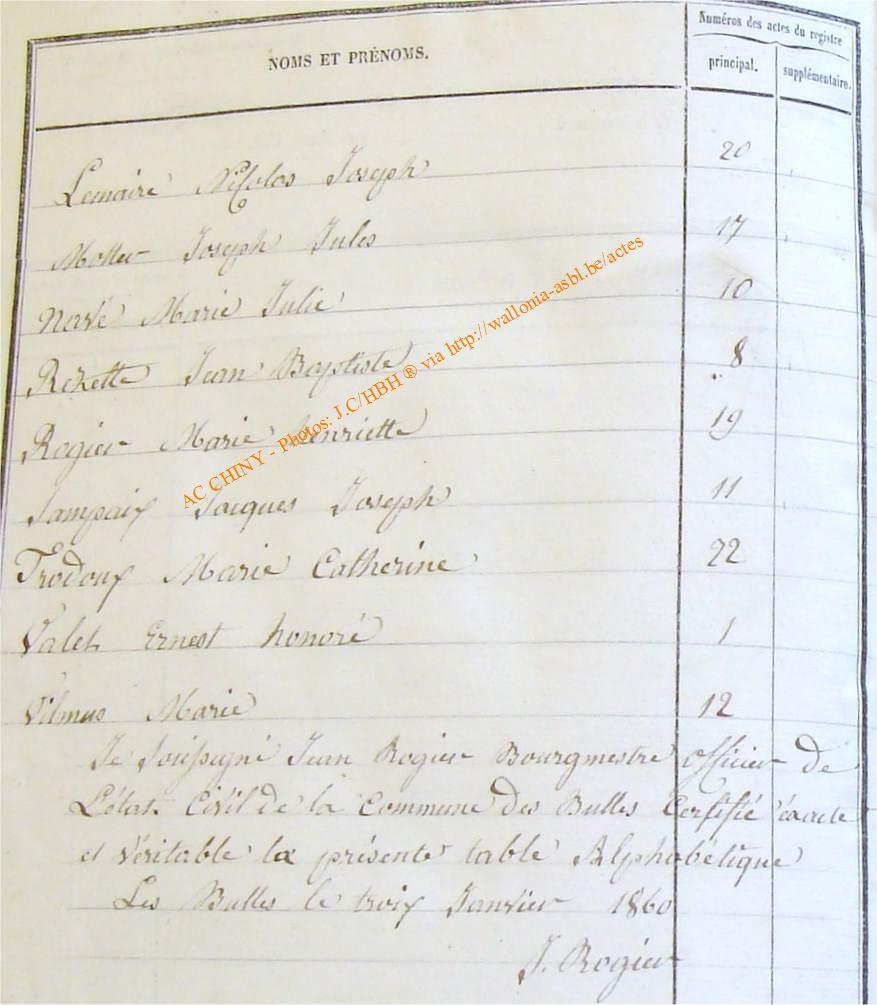 Numéros des actes du registre
NOMS ET PRÉNOMS.
principal.
supplémentaire.
Lemaire Nicolas Joseph 20
Motter Joseph Jules 17
Nervé Marie Julie 10
Rezette Jean Baptiste 8
Rogier Marie henriette 19
Sampaix Jacques Joseph 11
Trodoux Marie Catherine 22
Valet Ernest honoré 1
Vilmus Marie 12
Je Soussigné Jean Rogier Bourgmestre officier de
L'état Civil de la Commune des Bulles Certifié éxacte
et Véritable la présente table Alphabétique
Les Bulles le troix Janvier 1860
J. Rogier
AC CHINY - Photos: J.C/HBH ® via http://wallonia-asbl.be/actes